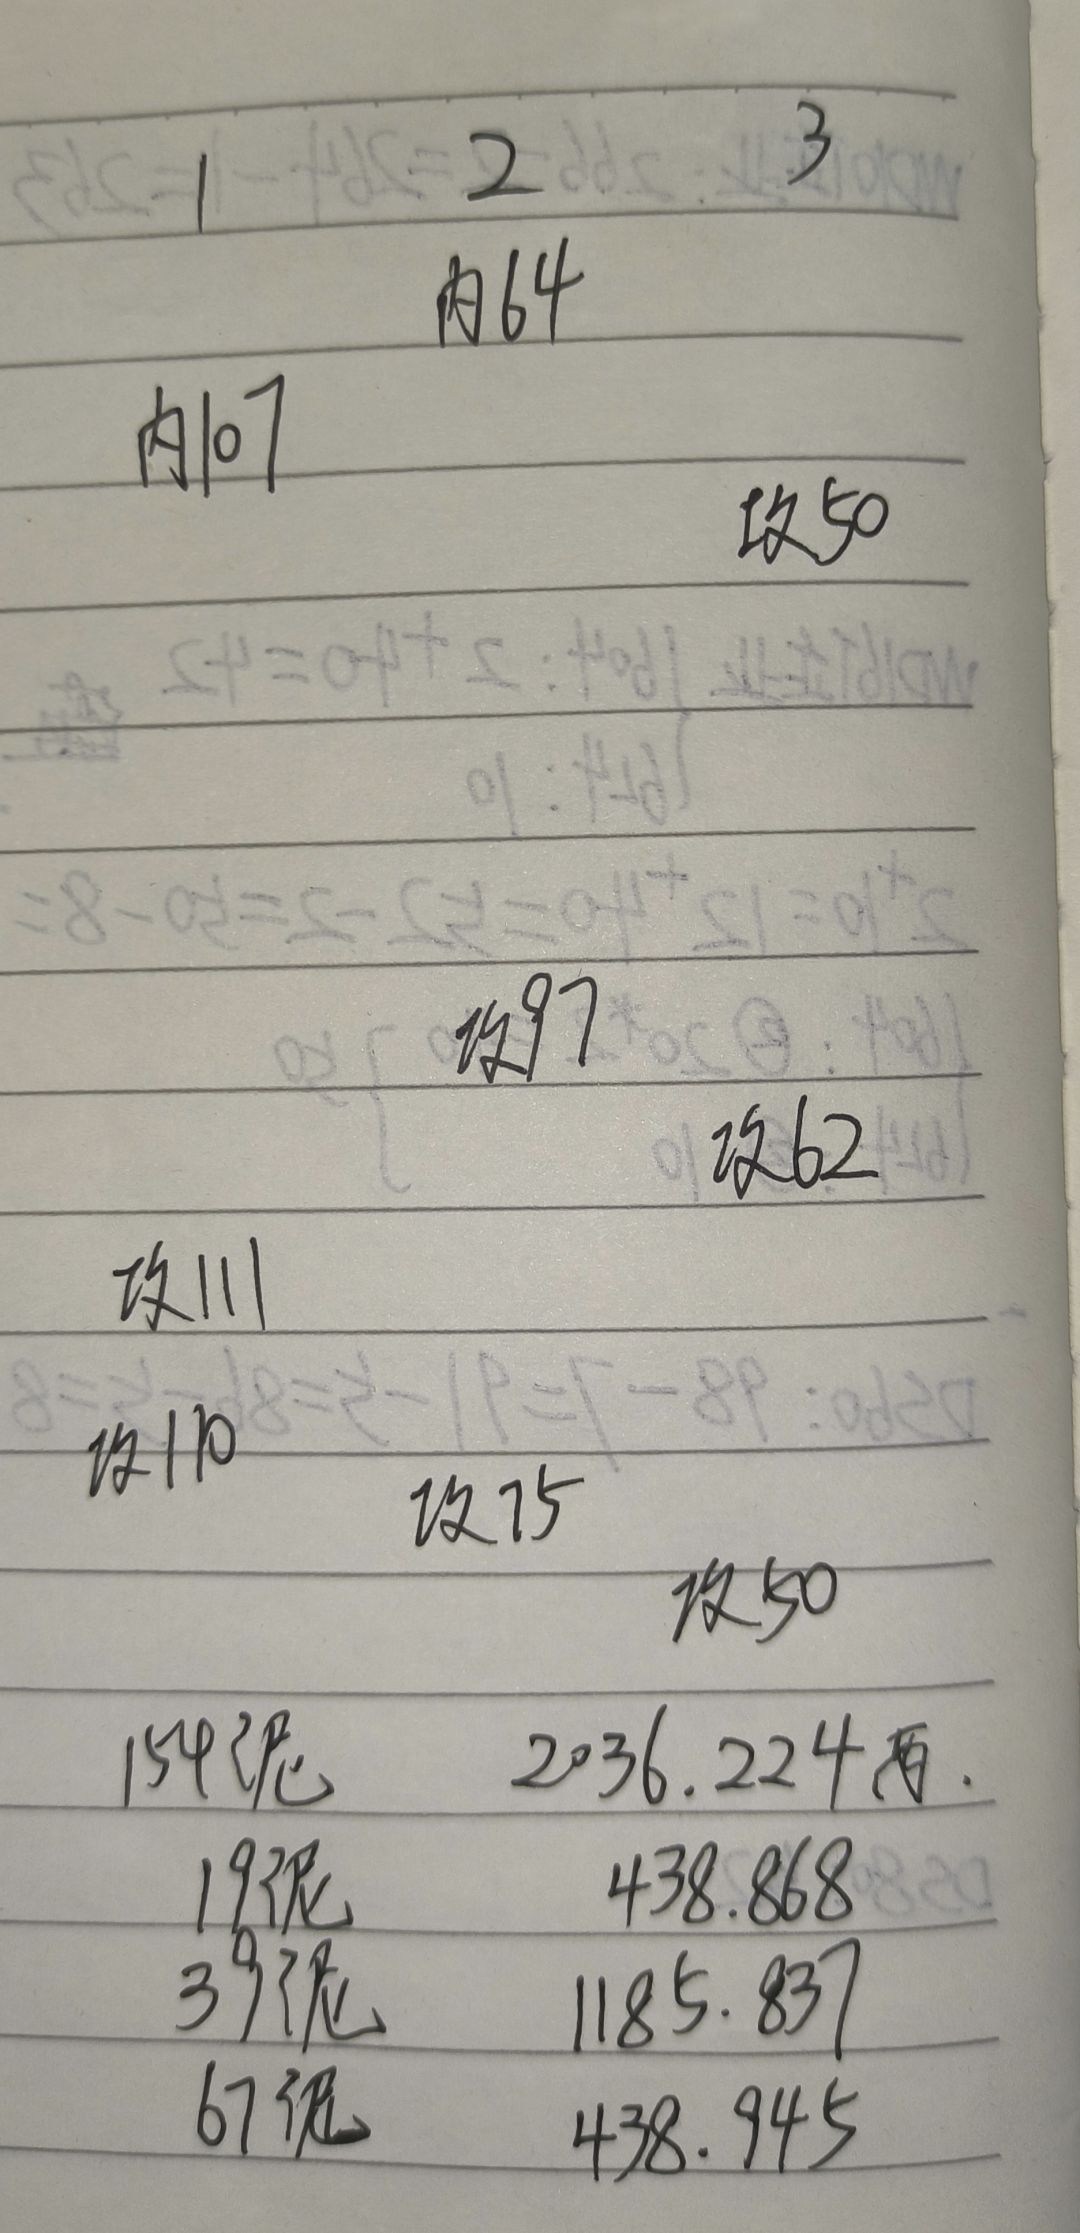 1 2 3
内64
内107
攻50
攻97
攻62
攻111
攻110
攻75
攻50
154泥 2036.224万.
19泥 438.868
39泥 1185.837
67泥 438.945